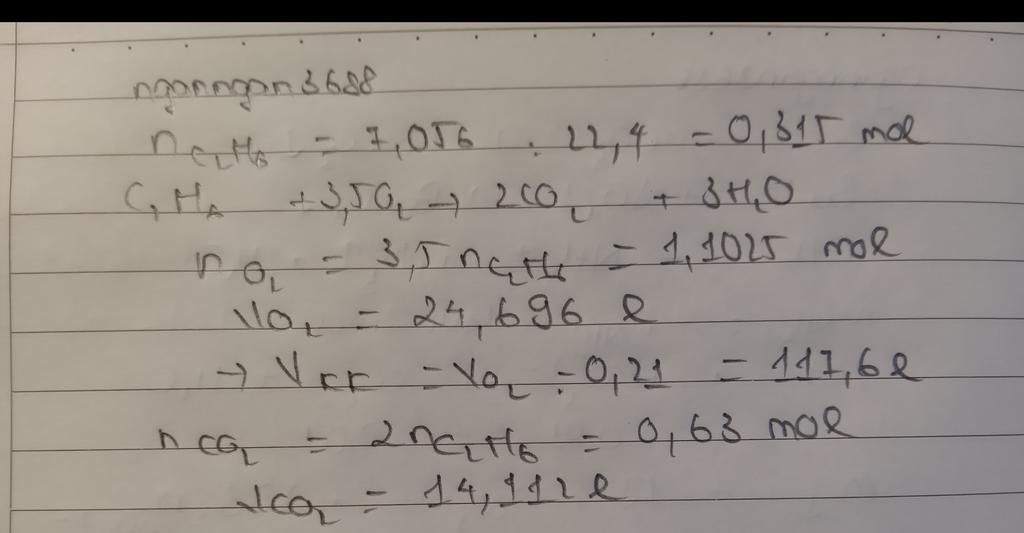 nganngan3688
nC₂H₆ = 7,056 : 22,4 = 0,315 mol
C₂H₆ + 3,5O₂ → 2CO₂ + 3H₂O
nO₂ = 3,5 nC₂H₆ = 1,1025 mol
VO₂ = 24,696 l
→ VKK = VO₂ : 0,21 = 117,6 l
nCO₂ = 2nC₂H₆ = 0,63 mol
VCO₂ = 14,112 l